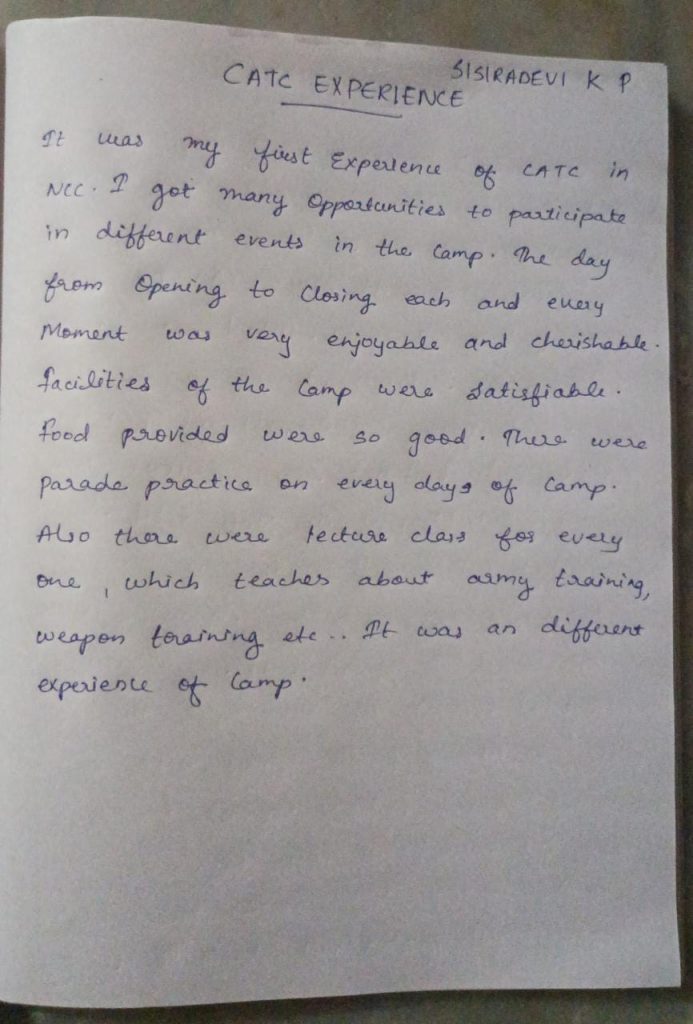 SISIRADEVI K P
CATC EXPERIENCE
It was my first Experience of CATC in
NCC. I got many Opportunities to participate
in different events in the Camp. The day
from Opening to Closing each and every
Moment was very enjoyable and cherishable.
facilities of the Camp were Satisfiable.
Food provided were so good. There were
Parade practice on every days of Camp.
Also there were lecture class for every
one, which teaches about army training,
weapon training etc.. It was an different
experience of Camp.